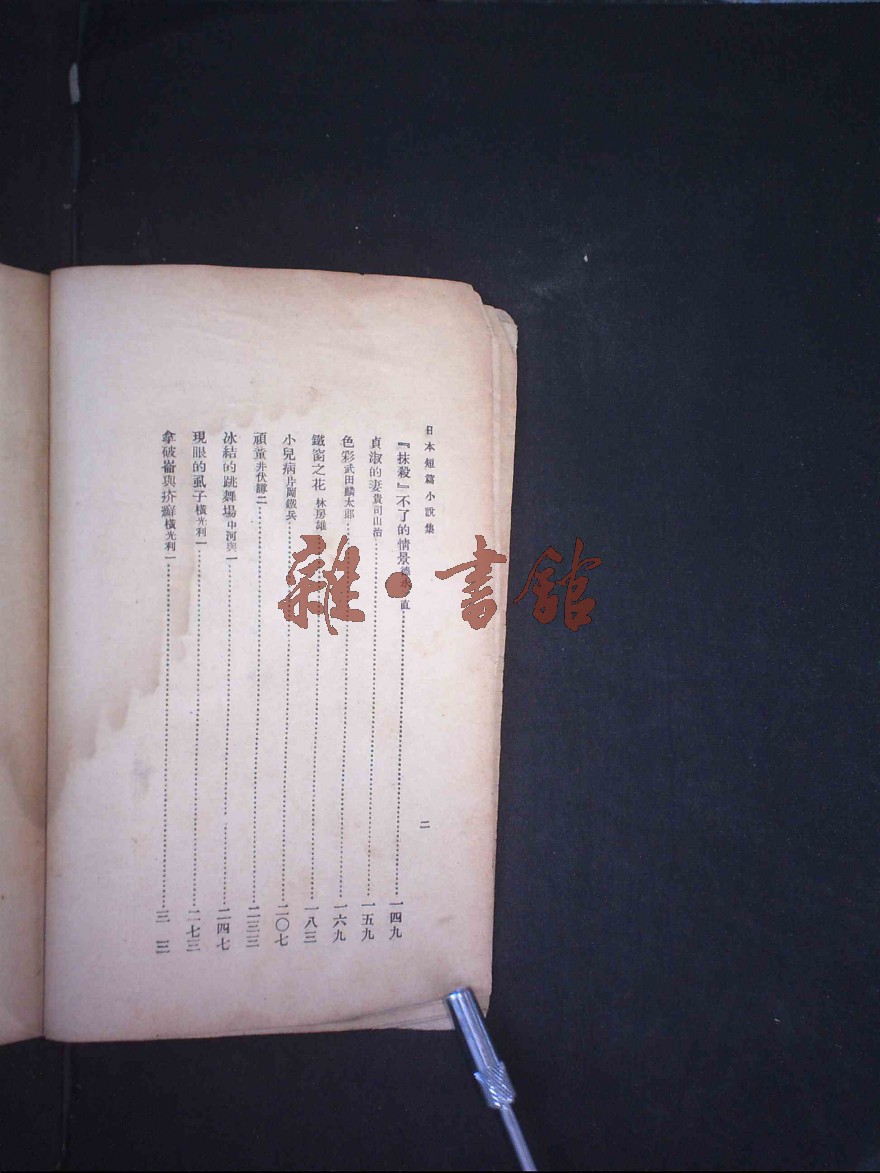 日本短篇小說集
二
『抹殺』不了的情景 德永 直……一四九
貞淑的妻 貴司山治……一五九
色彩 武田麟太郎……一六九
鐵窗之花 林房雄……一八三
小兒病 片岡鐵兵……二〇七
頑童 井伏鱒二……二三三
冰結的跳舞場 中河與一……二四七
現眼的虱子 橫光利一……二七三
拿破崙與疥癬 橫光利一……
雜·書館